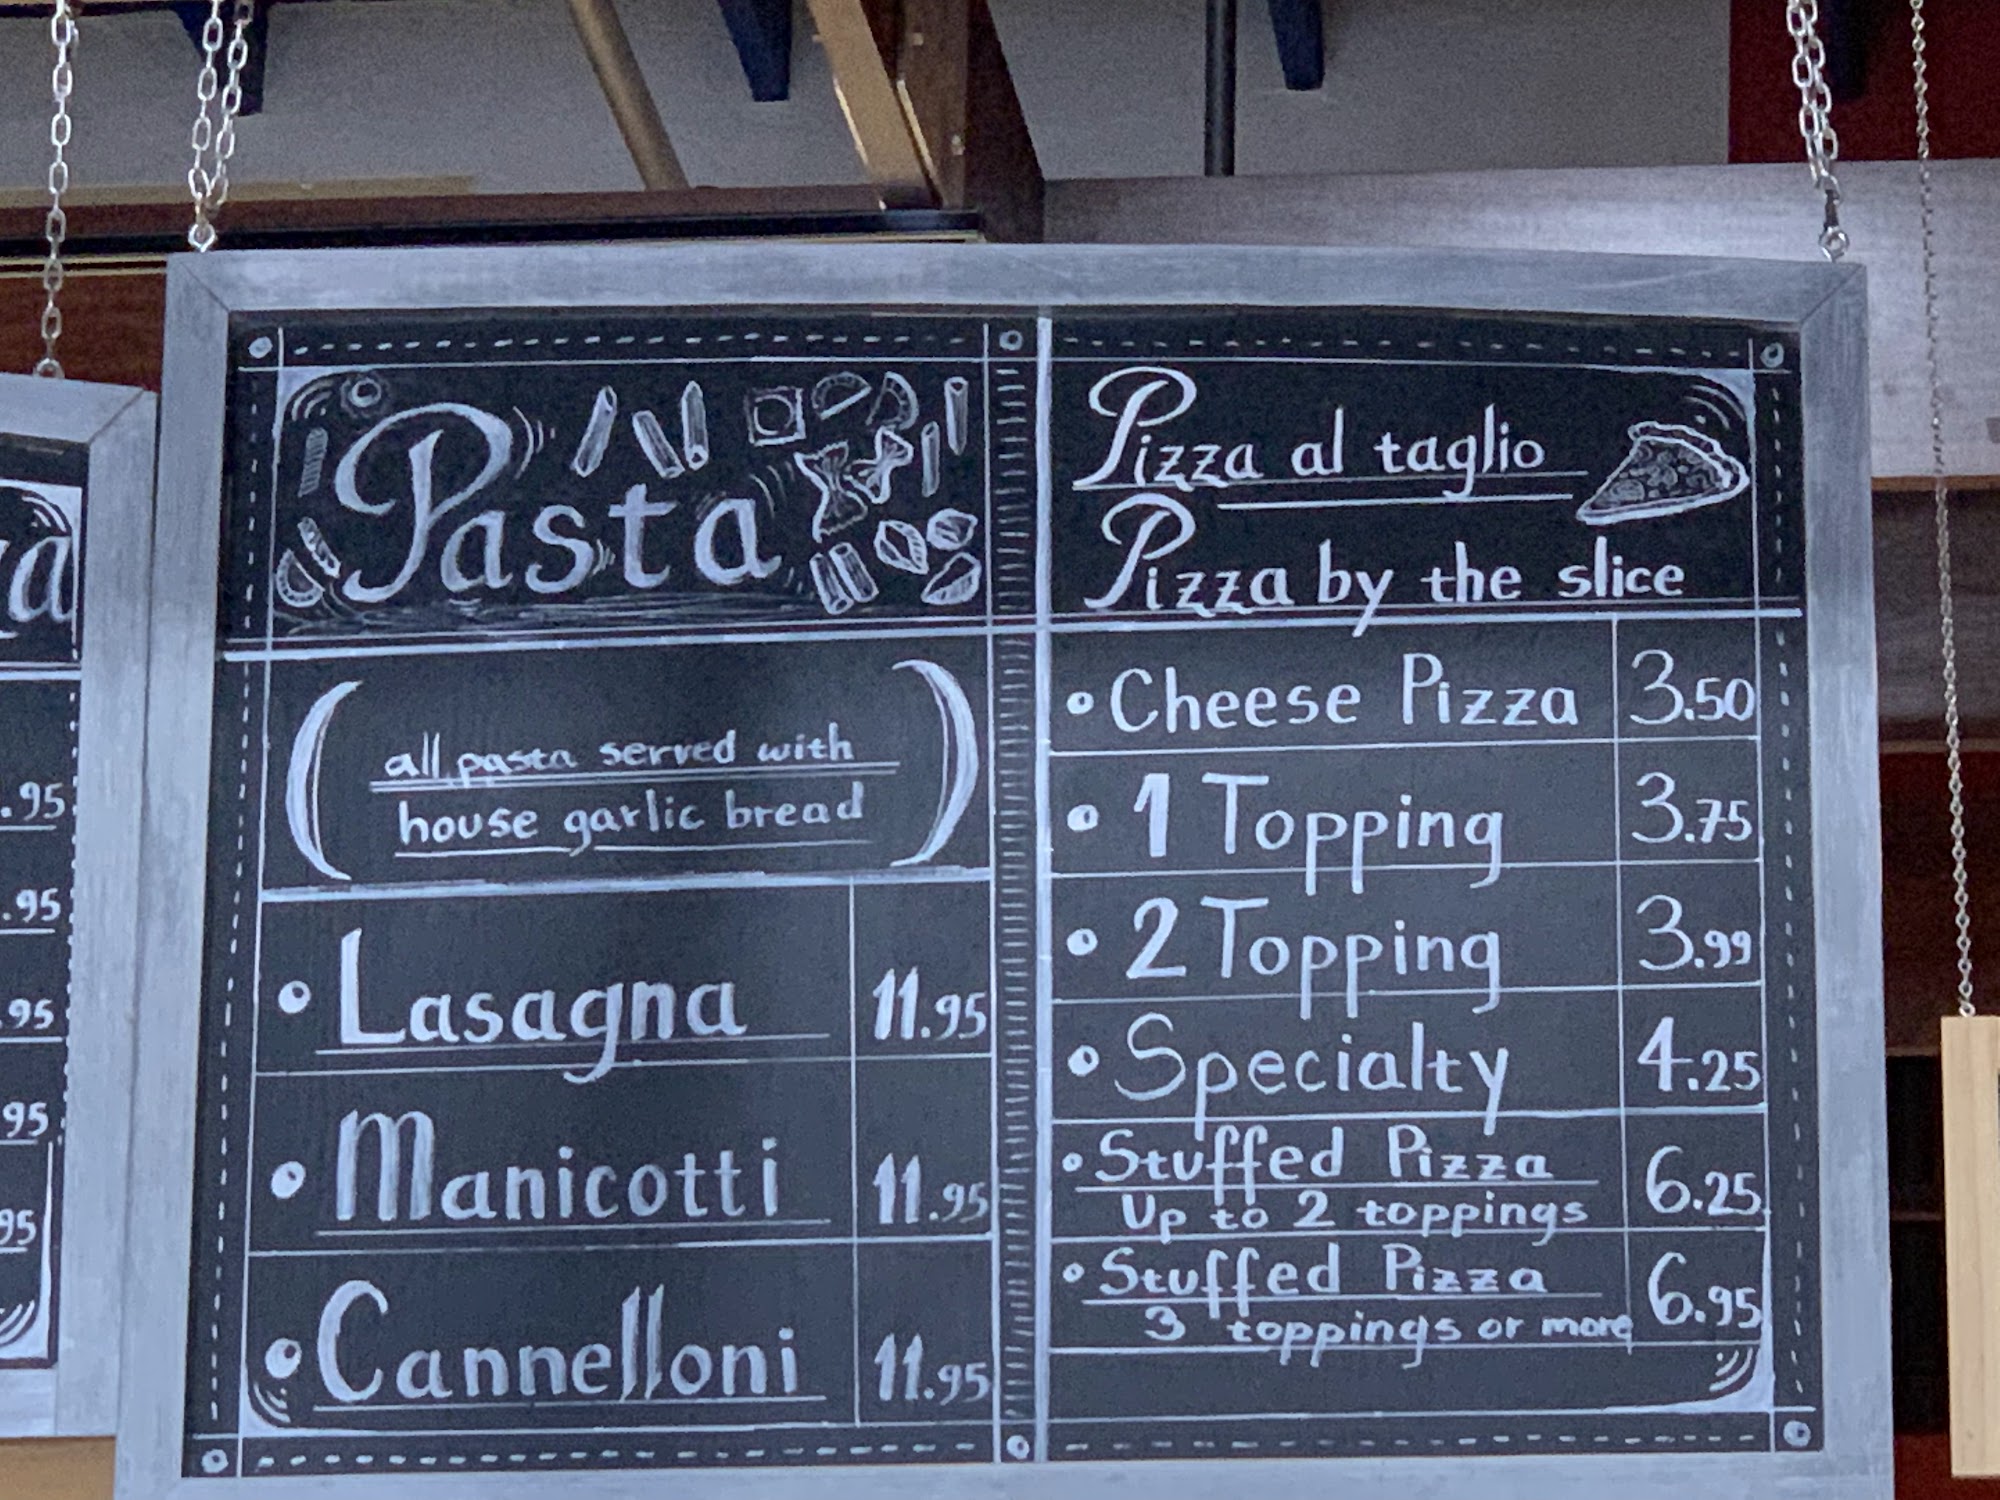 Pasta
(all pasta served with
house garlic bread)
• Lasagna 11.95
• Manicotti 11.95
• Cannelloni 11.95
Pizza al taglio
Pizza by the slice
• Cheese Pizza 3.50
• 1 Topping 3.75
• 2 Topping 3.99
• Specialty 4.25
• Stuffed Pizza 6.25
Up to 2 toppings
• Stuffed Pizza 6.95
3 toppings or more
.95
.95
.95
95
95